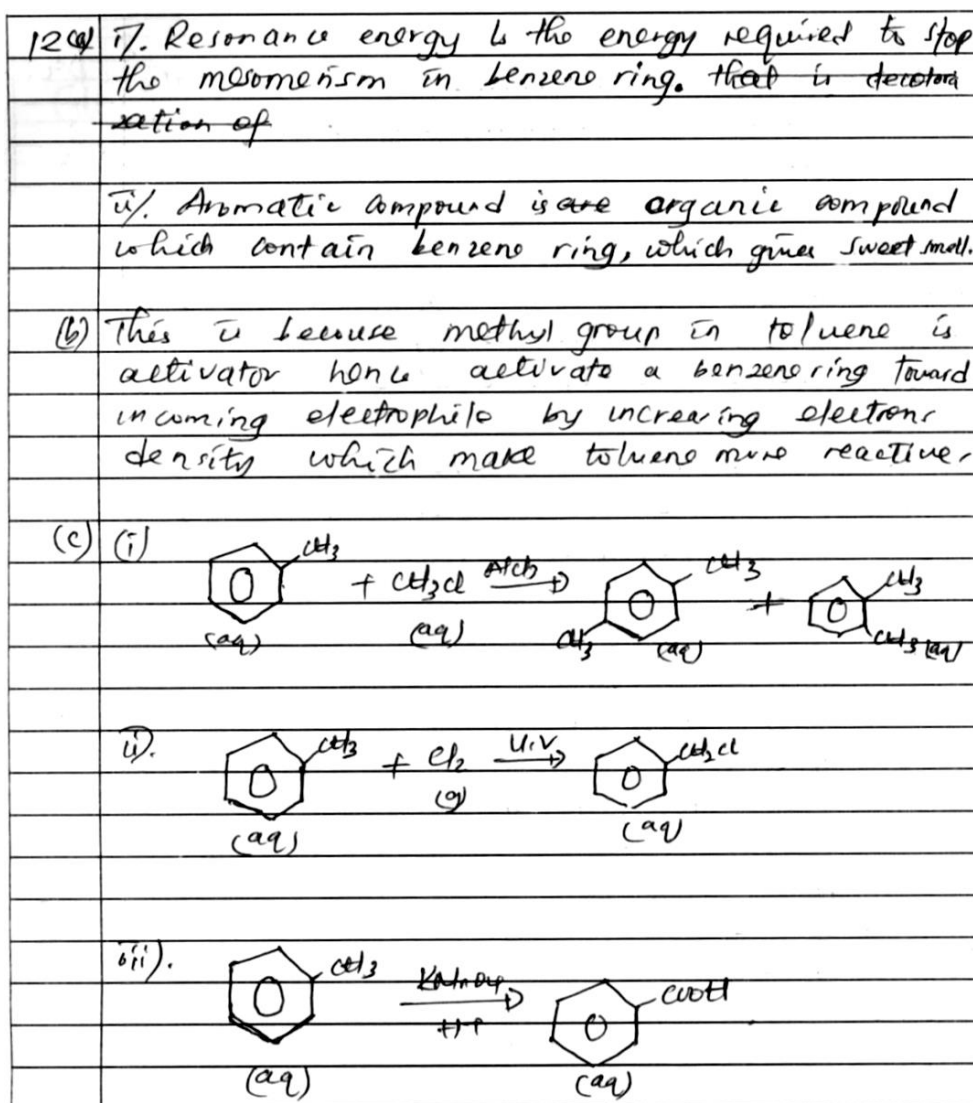 12(a) i). Resonance energy is the energy required to stop
the mesomerism in benzene ring. that is decolori
zation of
ii). Aromatic compound is are organic compound
which contain benzene ring, which gives sweet smell.
(b) This is because methyl group in toluene is
activator hence activate a benzene ring toward
incoming electrophile by increasing electrons
density which make toluene more reactive.
(c) (i) CH3 + CH3Cl AlCl3 CH3 + CH3
(aq) (aq) CH3 (aq) CH3 (aq)
ii). CH3 + Cl2 U.V CH2Cl
(aq) (g) (aq)
iii). CH3 KMnO4 COOH
(aq) (aq)